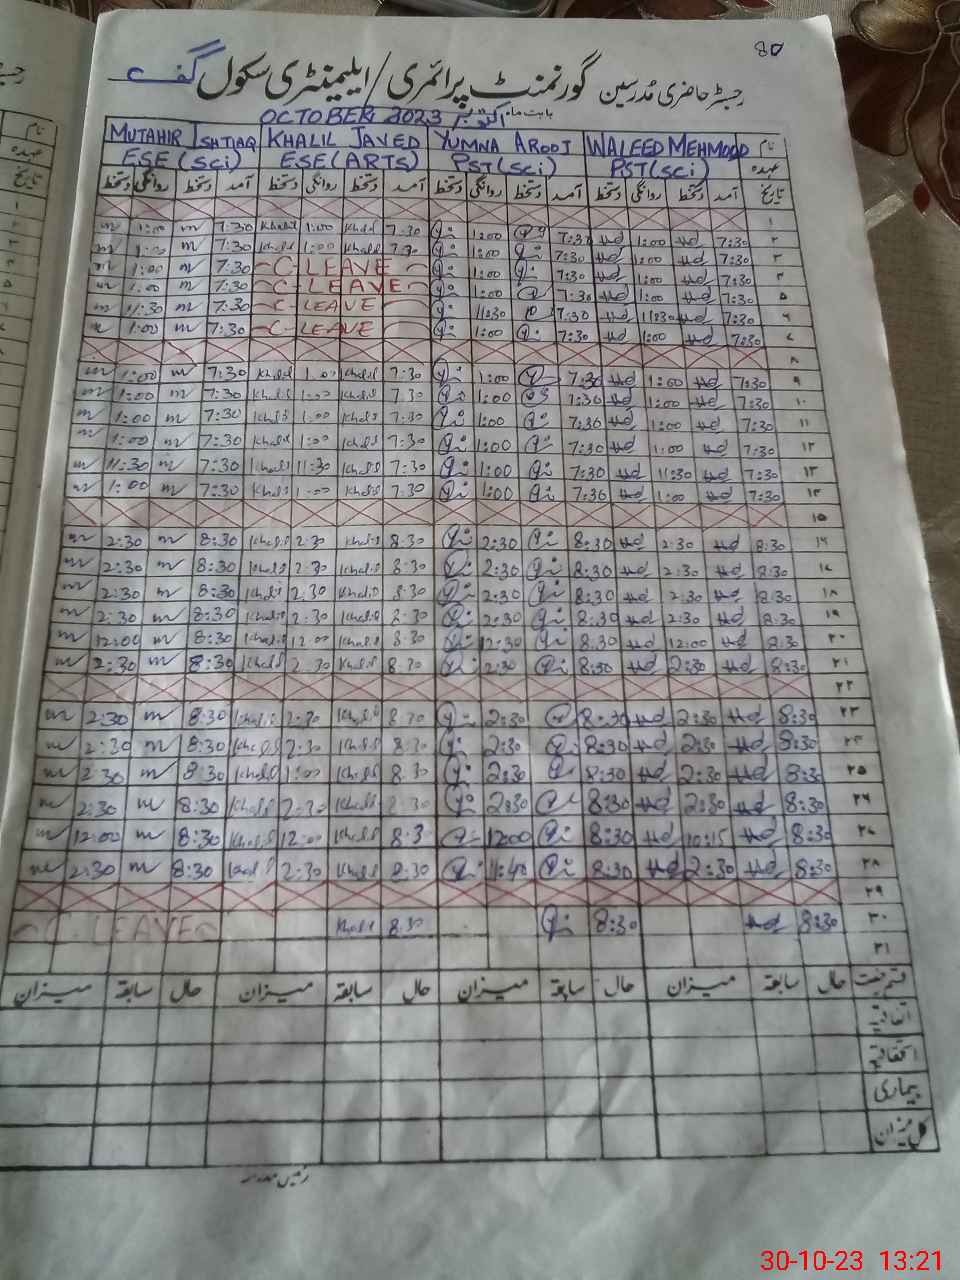 80
رجسٹر حاضری مدرسین گورنمنٹ پرائمری/ایلیمنٹری سکول
بابت ماہ اکتوبر OCTOBER 2023
نام WALEED MEHMOOD YUMNA AROOJ KHALIL JAVED MUTAHIR ISHTIAQ
عہدہ PST(SCi) PST(SCi) ESE(ARTS) ESE(SCi)
تاریخ آمد دستخط روانگی دستخط آمد دستخط روانگی دستخط آمد دستخط روانگی دستخط آمد دستخط روانگی دستخط
۱
۲ 7:30 1:00 7:30 1:00 7:30 Khalil 1:00 Khalil 7:30 m 1:00 m
۳ 7:30 1:00 7:30 1:00 7:30 Khalil 1:00 Khalil 7:30 m 1:00 m
۴ 7:30 1:00 7:30 1:00 C-LEAVE 7:30 m 1:00 m
۵ 7:30 1:00 7:30 1:00 C-LEAVE 7:30 m 1:00 m
۶ 7:30 11:30 7:30 11:30 C-LEAVE 7:30 m 11:30 m
۷ 7:30 1:00 7:30 1:00 C-LEAVE 7:30 m 1:00 m
۸
۹ 7:30 1:00 7:30 1:00 7:30 Khalil 1:00 Khalil 7:30 m 1:00 m
۱۰ 7:30 1:00 7:30 1:00 7:30 Khalil 1:00 Khalil 7:30 m 1:00 m
۱۱ 7:30 1:00 7:30 1:00 7:30 Khalil 1:00 Khalil 7:30 m 1:00 m
۱۲ 7:30 1:00 7:30 1:00 7:30 Khalil 1:00 Khalil 7:30 m 1:00 m
۱۳ 7:30 11:30 7:30 1:00 7:30 Khalil 11:30 Khalil 7:30 m 11:30 m
۱۴ 7:30 1:00 7:30 1:00 7:30 Khalil 1:00 Khalil 7:30 m 1:00 m
۱۵
۱۶ 8:30 2:30 8:30 2:30 8:30 Khalil 2:30 Khalil 8:30 m 2:30 m
۱۷ 8:30 2:30 8:30 2:30 8:30 Khalil 2:30 Khalil 8:30 m 2:30 m
۱۸ 8:30 2:30 8:30 2:30 8:30 Khalil 2:30 Khalil 8:30 m 2:30 m
۱۹ 8:30 2:30 8:30 2:30 8:30 Khalil 2:30 Khalil 8:30 m 2:30 m
۲۰ 8:30 12:00 8:30 12:30 8:30 Khalil 12:00 Khalil 8:30 m 12:00 m
۲۱ 8:30 2:30 8:30 2:30 8:30 Khalil 2:30 Khalil 8:30 m 2:30 m
۲۲
۲۳ 8:30 2:30 8:30 2:30 8:30 Khalil 2:30 Khalil 8:30 m 2:30 m
۲۴ 8:30 2:30 8:30 2:30 8:30 Khalil 2:30 Khalil 8:30 m 2:30 m
۲۵ 8:30 2:30 8:30 2:30 8:30 Khalil 1:00 Khalil 8:30 m 2:30 m
۲۶ 8:30 2:30 8:30 2:30 8:30 Khalil 2:30 Khalil 8:30 m 2:30 m
۲۷ 8:30 10:15 8:30 12:00 8:3 Khalil 12:00 Khalil 8:30 m 12:00 m
۲۸ 8:30 2:30 8:30 11:40 8:30 Khalil 2:30 Khalil 8:30 m 2:30 m
۲۹
۳۰ 8:30 8:30 8:30 Khalil C-LEAVE
۳۱
قسم رخصت حال سابقہ میزان حال سابقہ میزان حال سابقہ میزان حال سابقہ میزان
اتفاقیہ
استحقاقیہ
بیماری
کل میزان
رئیس مدرسہ
30-10-23 13:21